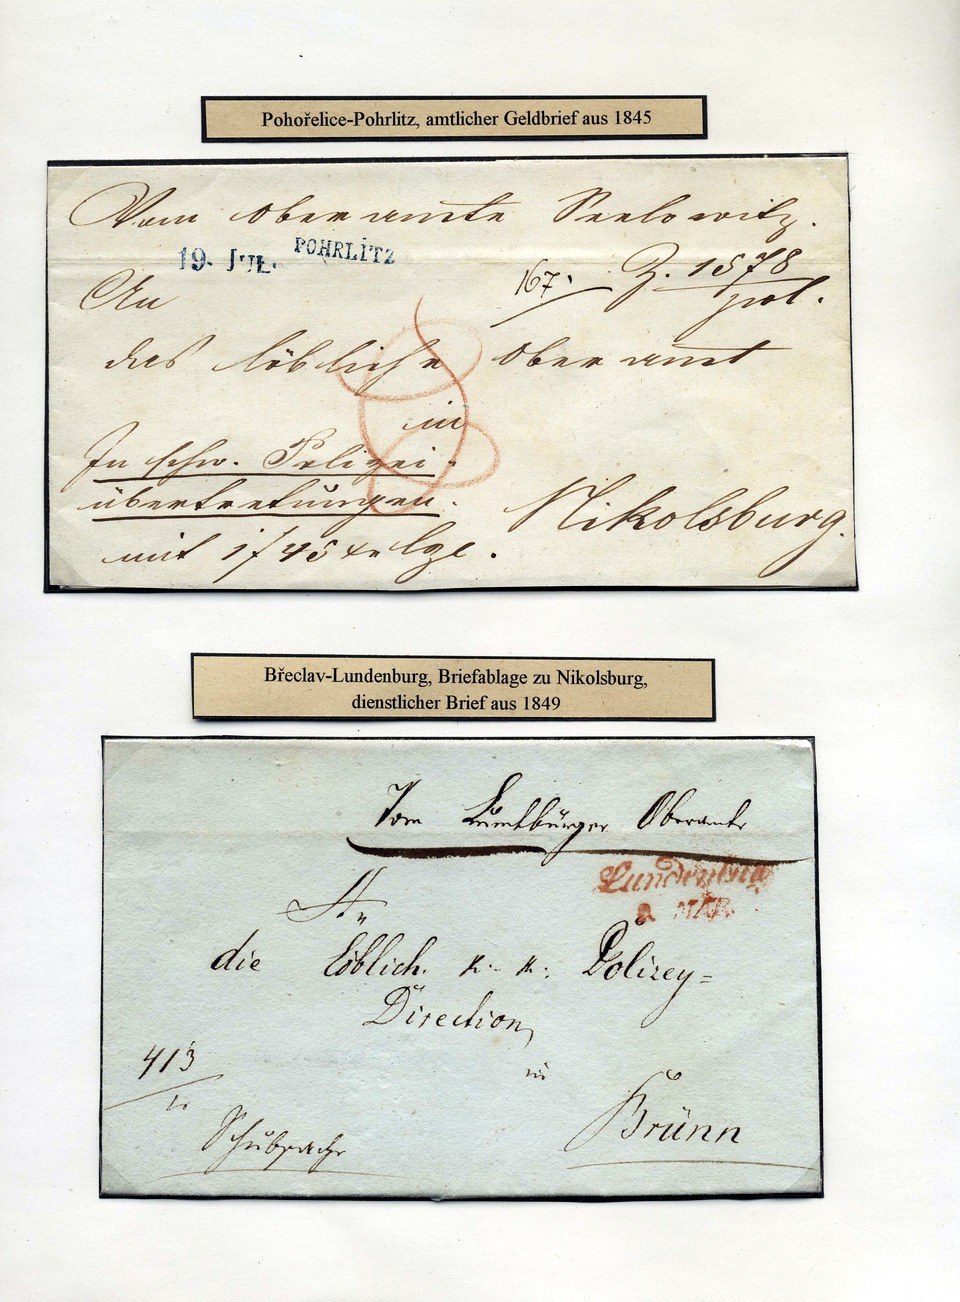 Pohořelice-Pohrlitz, amtlicher Geldbrief aus 1845
Vom Oberamte Seelowitz.
19. JUL. POHRLITZ
167. Z. 1578
pol.
An
das löbliche Oberamt
in
In schw. Polizei-
übertretungen.
Nikolsburg.
mit 1 f 45 x
Břeclav-Lundenburg, Briefablage zu Nikolsburg,
dienstlicher Brief aus 1849
Vom Lundbürger Oberamte
Lundenburg
8. MÄR.
An
die Löblich. k. k. Polizey=
Direction,
413
in
Brünn
Schubsache